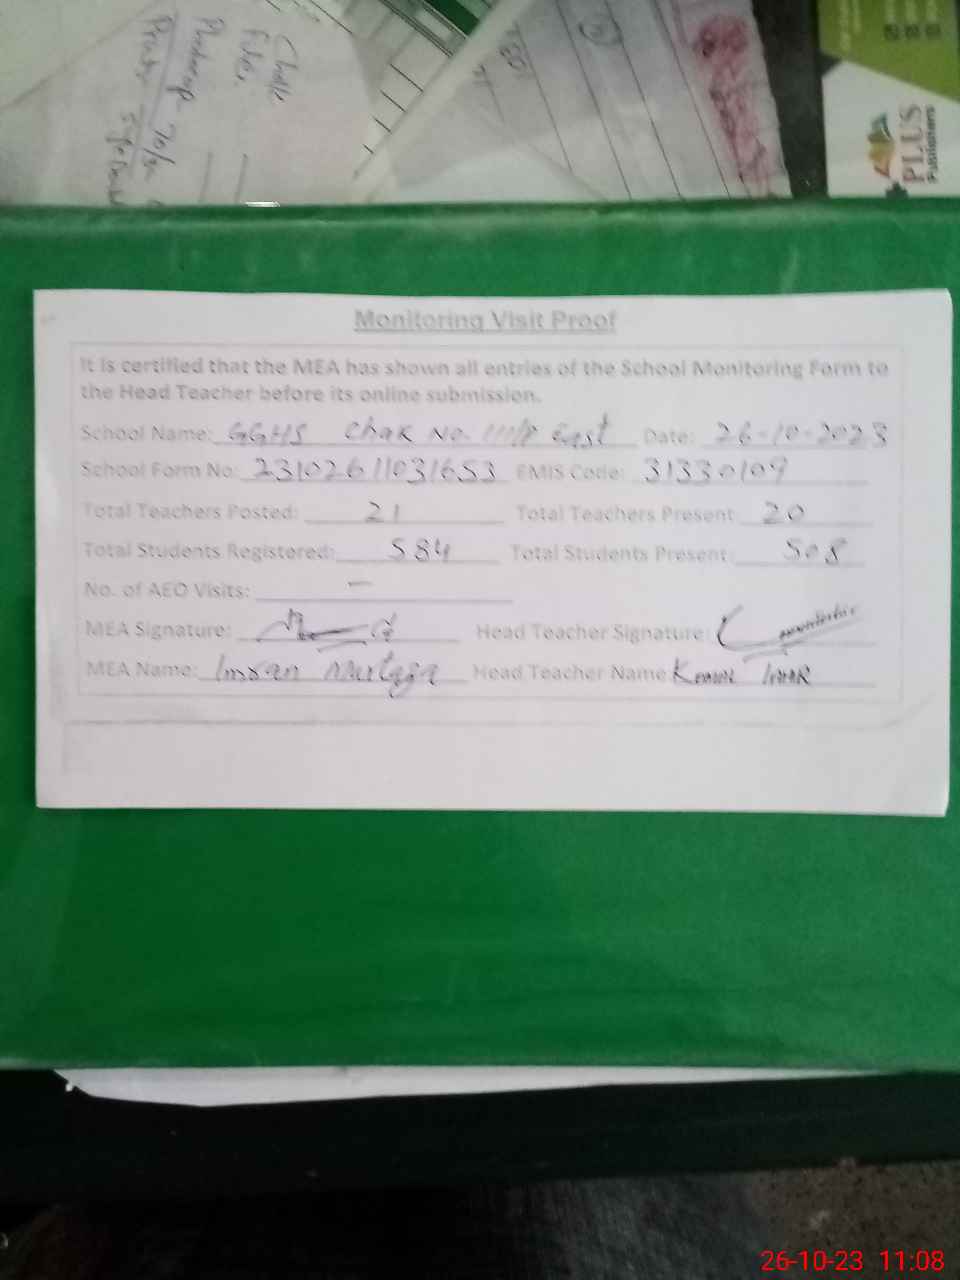 Challe
File
PLUS
Publishers
Monitoring Visit Proof
It is certified that the MEA has shown all entries of the School Monitoring Form to
the Head Teacher before its online submission.
School Name: GGHS Chak No. East Date: 26-10-2023
School Form No: 23102611031653 EMIS Code: 31330109
Total Teachers Posted: 21 Total Teachers Present: 20
Total Students Registered: 584 Total Students Present: 508
No. of AEO Visits: –
MEA Signature: Head Teacher Signature:
MEA Name: Imran Murtaza Head Teacher Name:
26-10-23 11:08